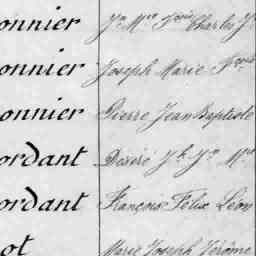 onnier Jn Mie Fois Charles Jh
onnier Joseph Marie Fçois
onnier Pierre Jean Baptiste
ordant Désiré Jh Jn Mie
ordant François Félix Léon
ot Marie Joseph Jérôme